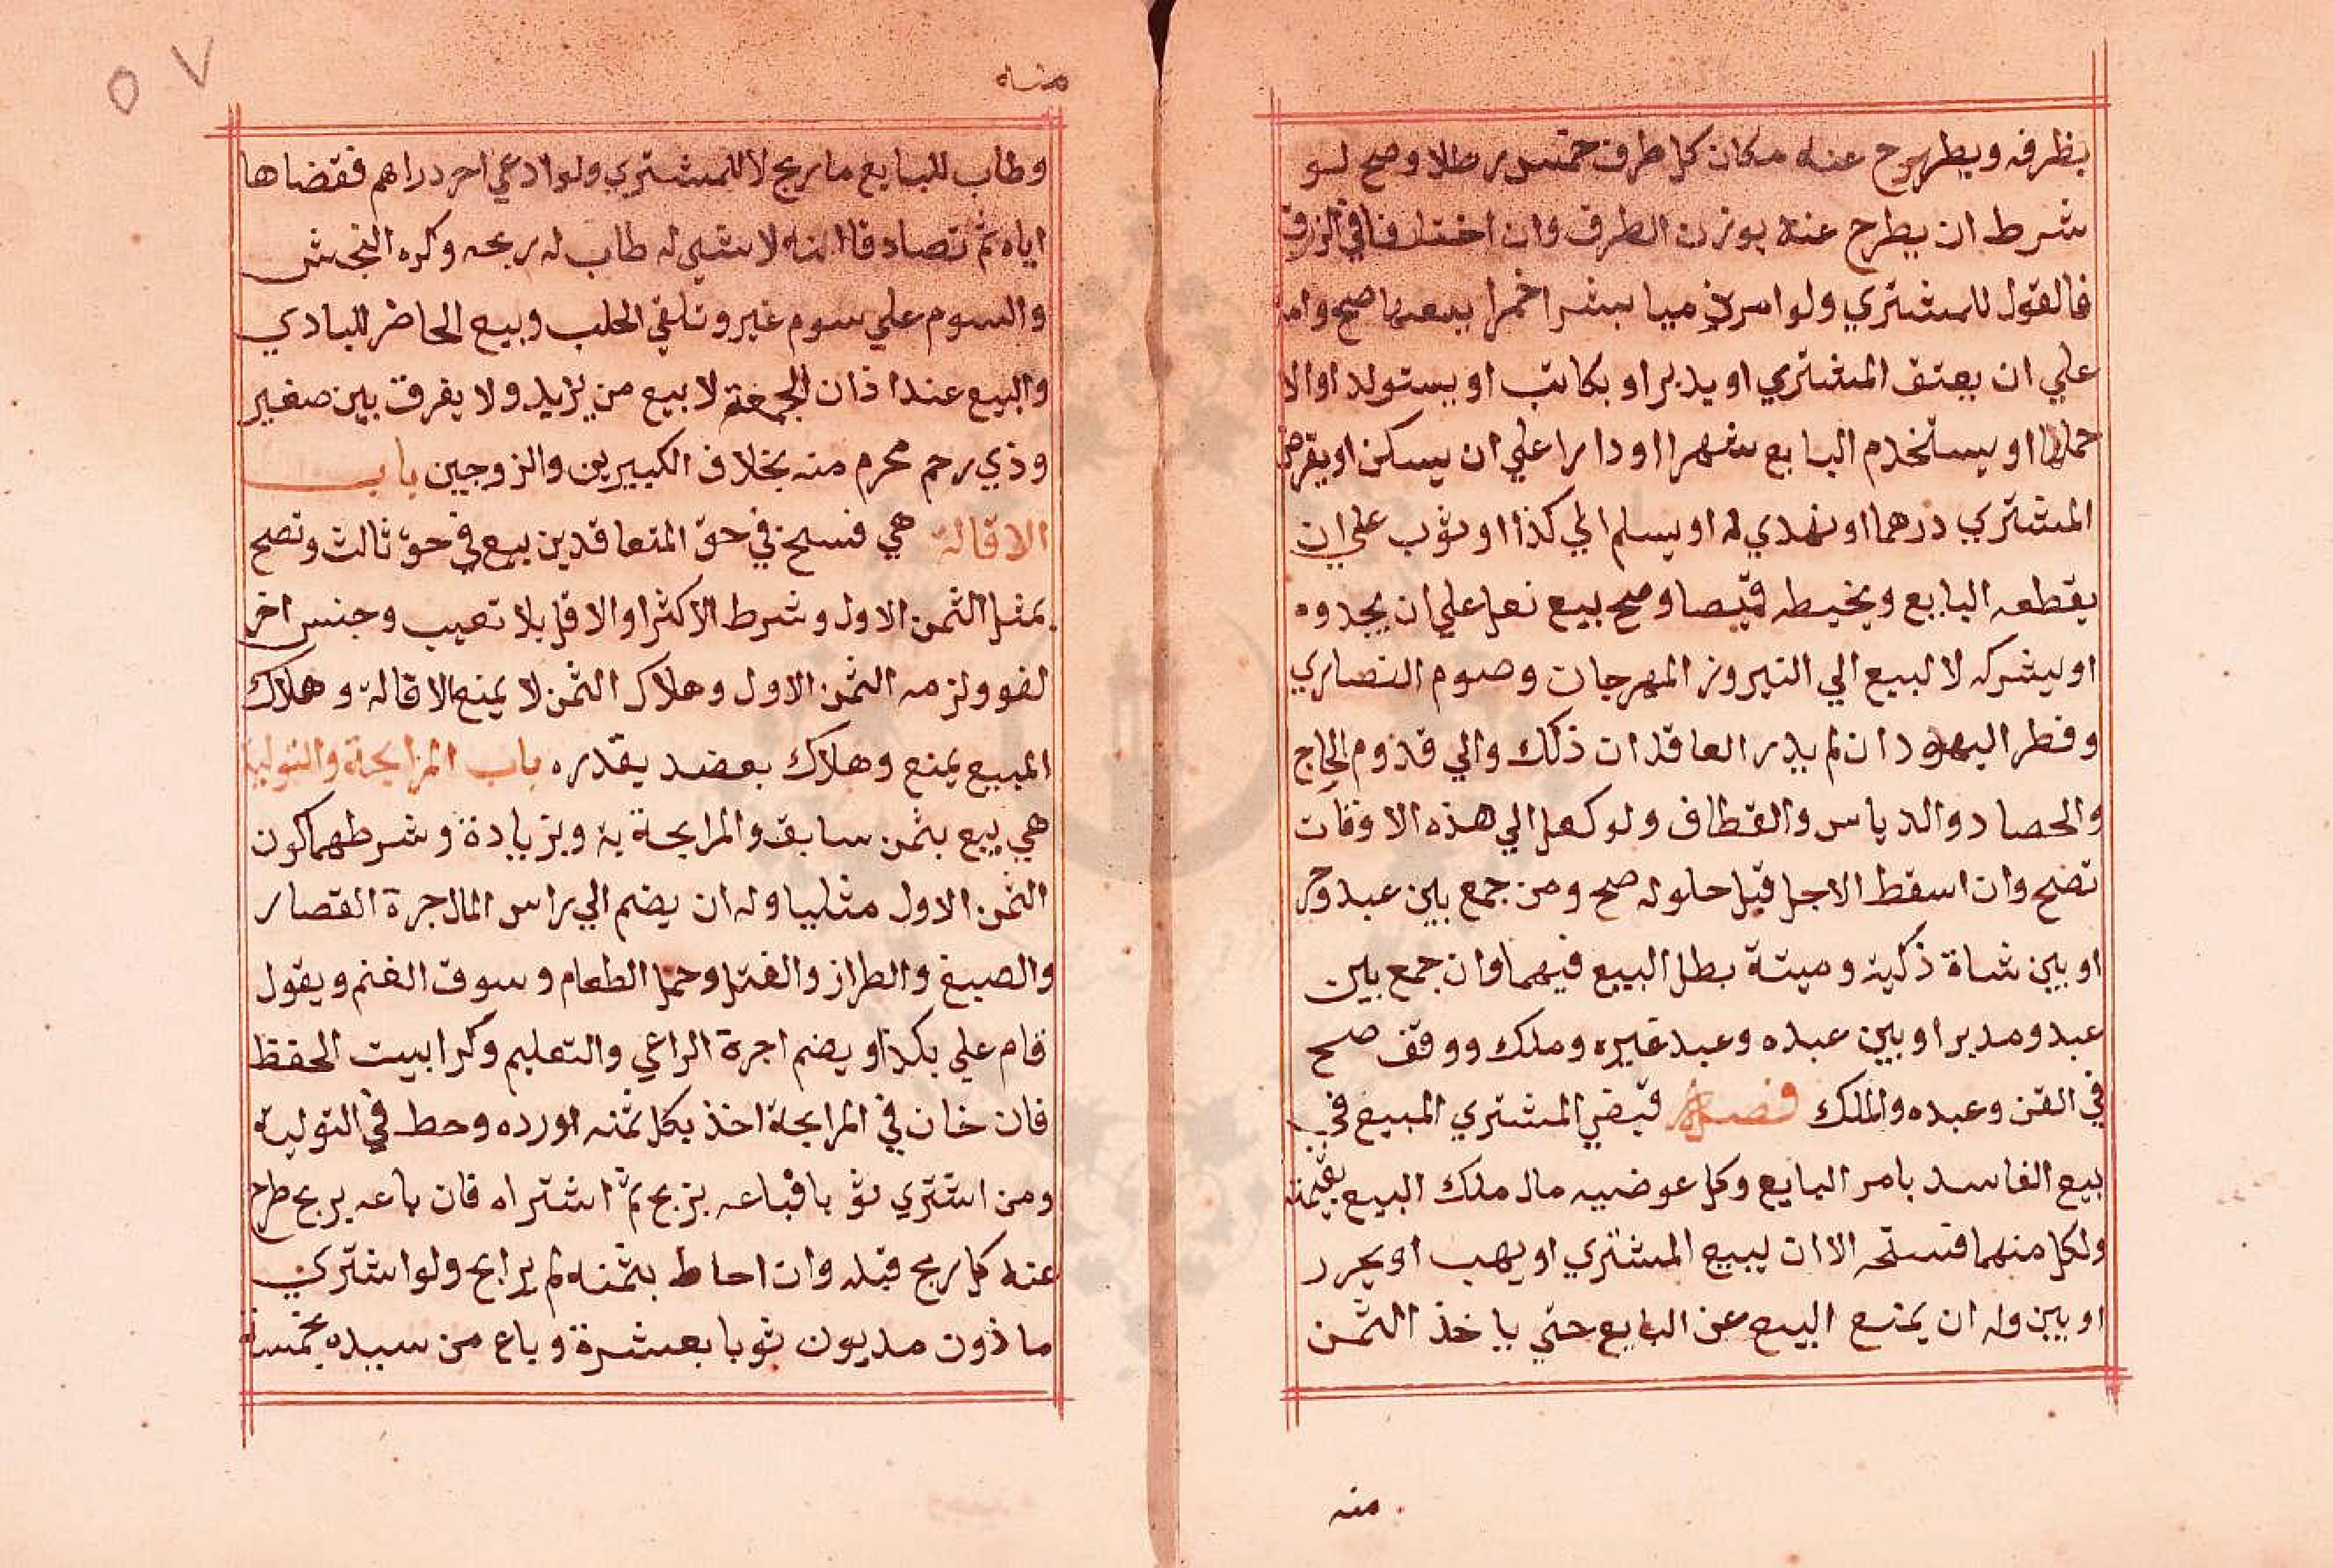 بظرفه ويطرح عنه مكان كل ظرف خمسين رطلا وصح لو
شرط ان يطرح عنه بوزن الظرف وان اختلفا في الزق
فالقول للمشتري ولو امر ذميا بشرا خمرا بيعها صح وامة
علي ان يعتق المشتري او يدبر او يكاتب او يستولد او الا
حملها او يستخدم البايع شهرا او دارا علي ان يسكن او يقرض
المشتري درهما او يهدي له او يسلم الي كذا او ثوب علي ان
يقطعه البايع ويخيطه قميصا وصح بيع نعل علي ان يحدوه
او يشركه لا لبيع الي النيروز المهرجان وصوم النصاري
وفطر اليهود ان لم يدر العاقدان ذلك والي قدوم الحاج
والحصاد والدياس والقطاف ولو كفل الي هذه الاوقات
تصح وان اسقط الاجل قبل حلوله صح ومن جمع بين عبد وحر
او بين شاة ذكية وميتة بطل البيع فيهما وان جمع بين
عبد ومدبر او بين عبده وعبد غيره وملك ووقف صح
في القن وعبده والملك فصل قبض المشتري المبيع في
بيع الفاسد بامر البايع وكل عوضيه مال ملك البيع بقيمته
ولكل منهما فسخه الا ان يبيع المشتري او يهب او يحرر
او يبين وله ان يمنع البيع عن البايع حتي ياخذ الثمن
منه
منه
٥٧
وطاب للبايع ما ربح لا للمشتري ولو ادعي اخر دراهم فقضاها
اياه ثم تصادقا انه لا شي له طاب له ربحه وكره النجش
والسوم علي سوم غيره وتلقي الجلب وبيع الحاضر للبادي
والبيع عند اذان الجمعة لا بيع من يزيد ولا يفرق بين صغير
وذي رحم محرم منه بخلاف الكبيرين والزوجين باب
الاقالة هي فسخ في حق المتعاقدين بيع في حق ثالث وتصح
بمثل الثمن الاول وشرط الاكثر او الاقل بلا تعيب وجنس اخر
لغو ولزمه الثمن الاول وهلاك الثمن لا يمنع الاقالة وهلاك
المبيع يمنع وهلاك بعضه بقدره باب المرابحة والتولية
هي بيع بثمن سابق والمرابحة به وبزيادة وشرطهما كون
الثمن الاول مثليا وله ان يضم الي راس المال اجرة القصار
والصبغ والطراز والفتل وحمل الطعام وسوق الغنم ويقول
قام علي بكذا ويضم اجرة الراعي والتعليم وكرا بيت الحفظ
فان خان في المرابحة اخذ بكل ثمنه او رده وحط في التولية
ومن اشتري ثوبا فباعه بربح ثم اشتراه فان باعه بربح طرح
عنه كل ربح قبله وان احاط بثمنه لم يرابح ولو اشتري
ماذون مديون ثوبا بعشرة وباع من سيده بخمسة